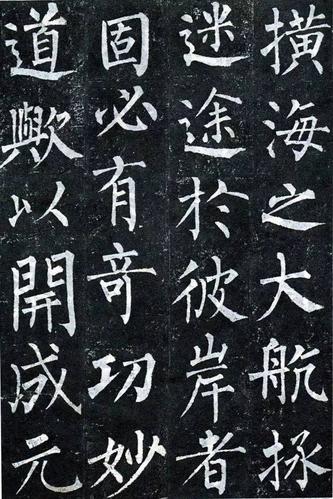 横海之大航拯
迷途於彼岸者
固必有奇功妙
道歟以開成元